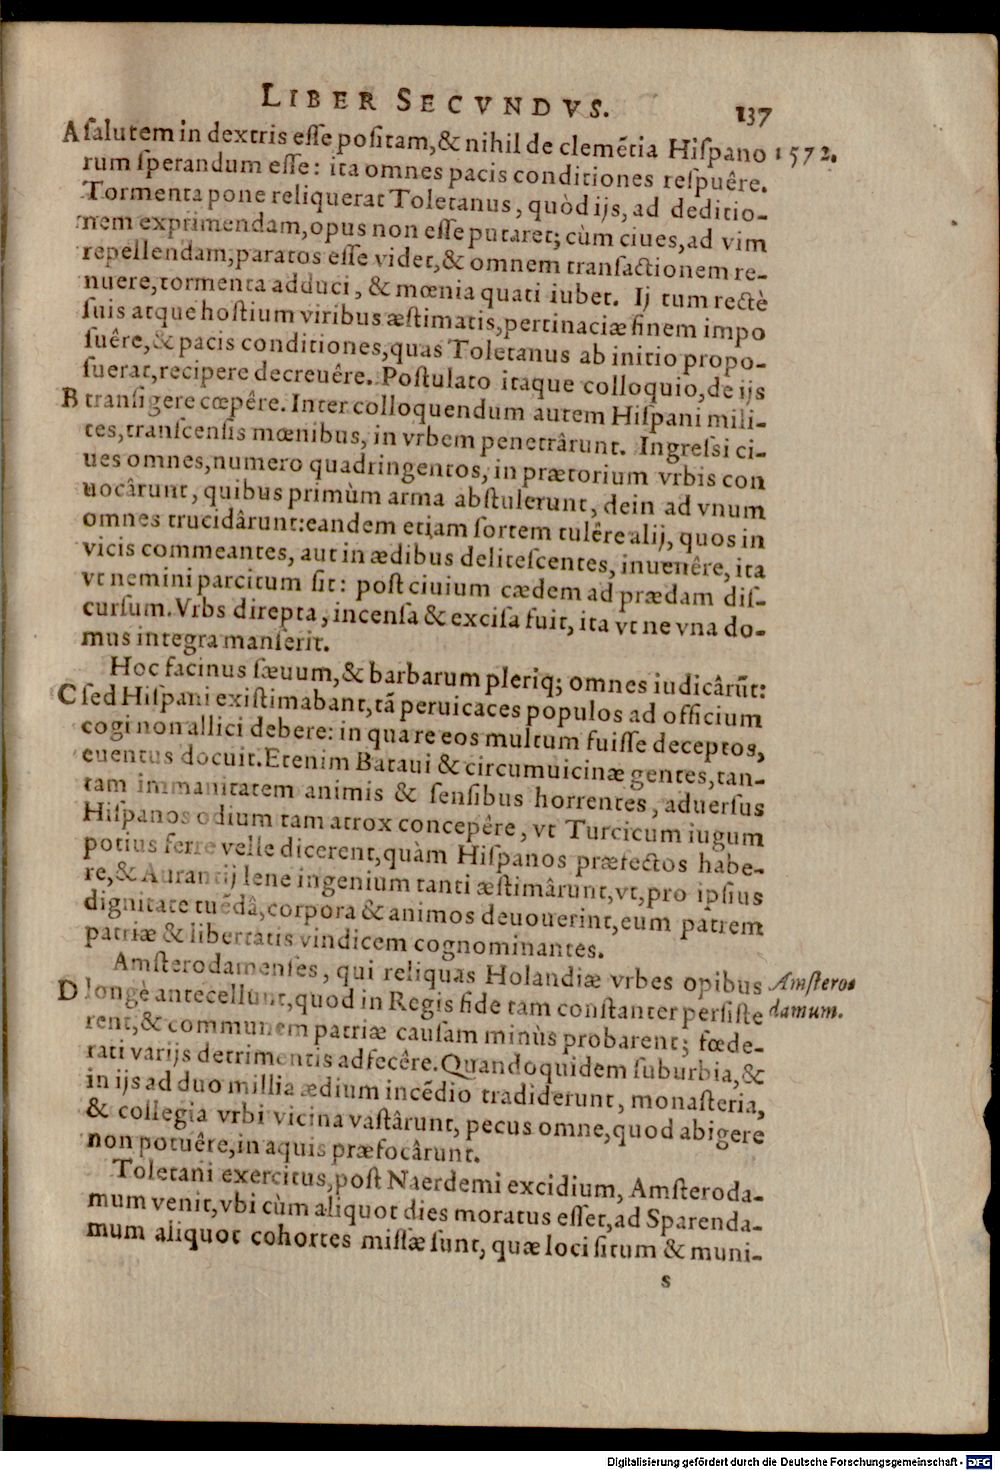 LIBER SECVNDVS. 137
A ſalutem in dextris eſſe poſitam, & nihil de clemẽtia Hiſpano 1572.
rum ſperandum eſſe: ita omnes pacis conditiones reſpuêre.
Tormenta pone reliquerat Toletanus, quòd ijs, ad deditio-
nem exprimendam, opus non eſſe putaret; cùm ciues, ad vim
repellendam, paratos eſſe videt, & omnem tranſactionem re-
nuere, tormenta adduci, & mœnia quati iubet. Ij tum rectè
ſuis atque hoſtium viribus æſtimatis, pertinaciæ finem impo
ſuêre, & pacis conditiones, quas Toletanus ab initio propo-
ſuerat, recipere decreuêre. Poſtulato itaque colloquio, de ijs
B tranſigere cœpêre. Inter colloquendum autem Hiſpani mili-
tes, tranſcenſis mœnibus, in vrbem penetrârunt. Ingreſsi ci-
ues omnes, numero quadringentos, in prætorium vrbis con
uocârunt, quibus primùm arma abſtulerunt, dein ad vnum
omnes trucidârunt: eandem etiam ſortem tulêre alij, quos in
vicis commeantes, aut in ædibus deliteſcentes, inuenêre, ita
vt nemini parcitum ſit: poſt ciuium cædem ad prædam diſ-
curſum. Vrbs direpta, incenſa & exciſa fuit, ita vt ne vna do-
mus integra manſerit.
Hoc facinus ſæuum, & barbarum pleriq; omnes iudicârũt:
C ſed Hiſpani exiſtimabant, tã peruicaces populos ad officium
cogi non allici debere: in qua re eos multum fuiſſe deceptos,
euentus docuit. Etenim Bataui & circumuicinæ gentes, tan-
tam immanitatem animis & ſenſibus horrentes, aduerſus
Hiſpanos odium tam atrox concepêre, vt Turcicum iugum
potius ferre velle dicerent, quàm Hiſpanos præfectos habe-
re, & Aurantij lene ingenium tanti æſtimârunt, vt, pro ipſius
dignitate tuẽdâ, corpora & animos deuouerint, eum patrem
patriæ & libertatis vindicem cognominantes.
Amſterodamenſes, qui reliquas Holandiæ vrbes opibus Amſtero-
D longè antecellunt, quod in Regis fide tam conſtanter perſiſte damum.
rent, & communem patriæ cauſam minùs probarent; fœde-
rati varijs detrimentis adfecêre. Quandoquidem ſuburbia, &
in ijs ad duo millia ædium incẽdio tradiderunt, monaſteria,
& collegia vrbi vicina vaſtârunt, pecus omne, quod abigere
non potuêre, in aquis præfocârunt.
Toletani exercitus, poſt Naerdemi excidium, Amſteroda-
mum venit, vbi cùm aliquot dies moratus eſſet, ad Sparenda-
mum aliquot cohortes miſſæ ſunt, quæ loci ſitum & muni-
s
Digitalisierung gefördert durch die Deutsche Forschungsgemeinschaft - DFG